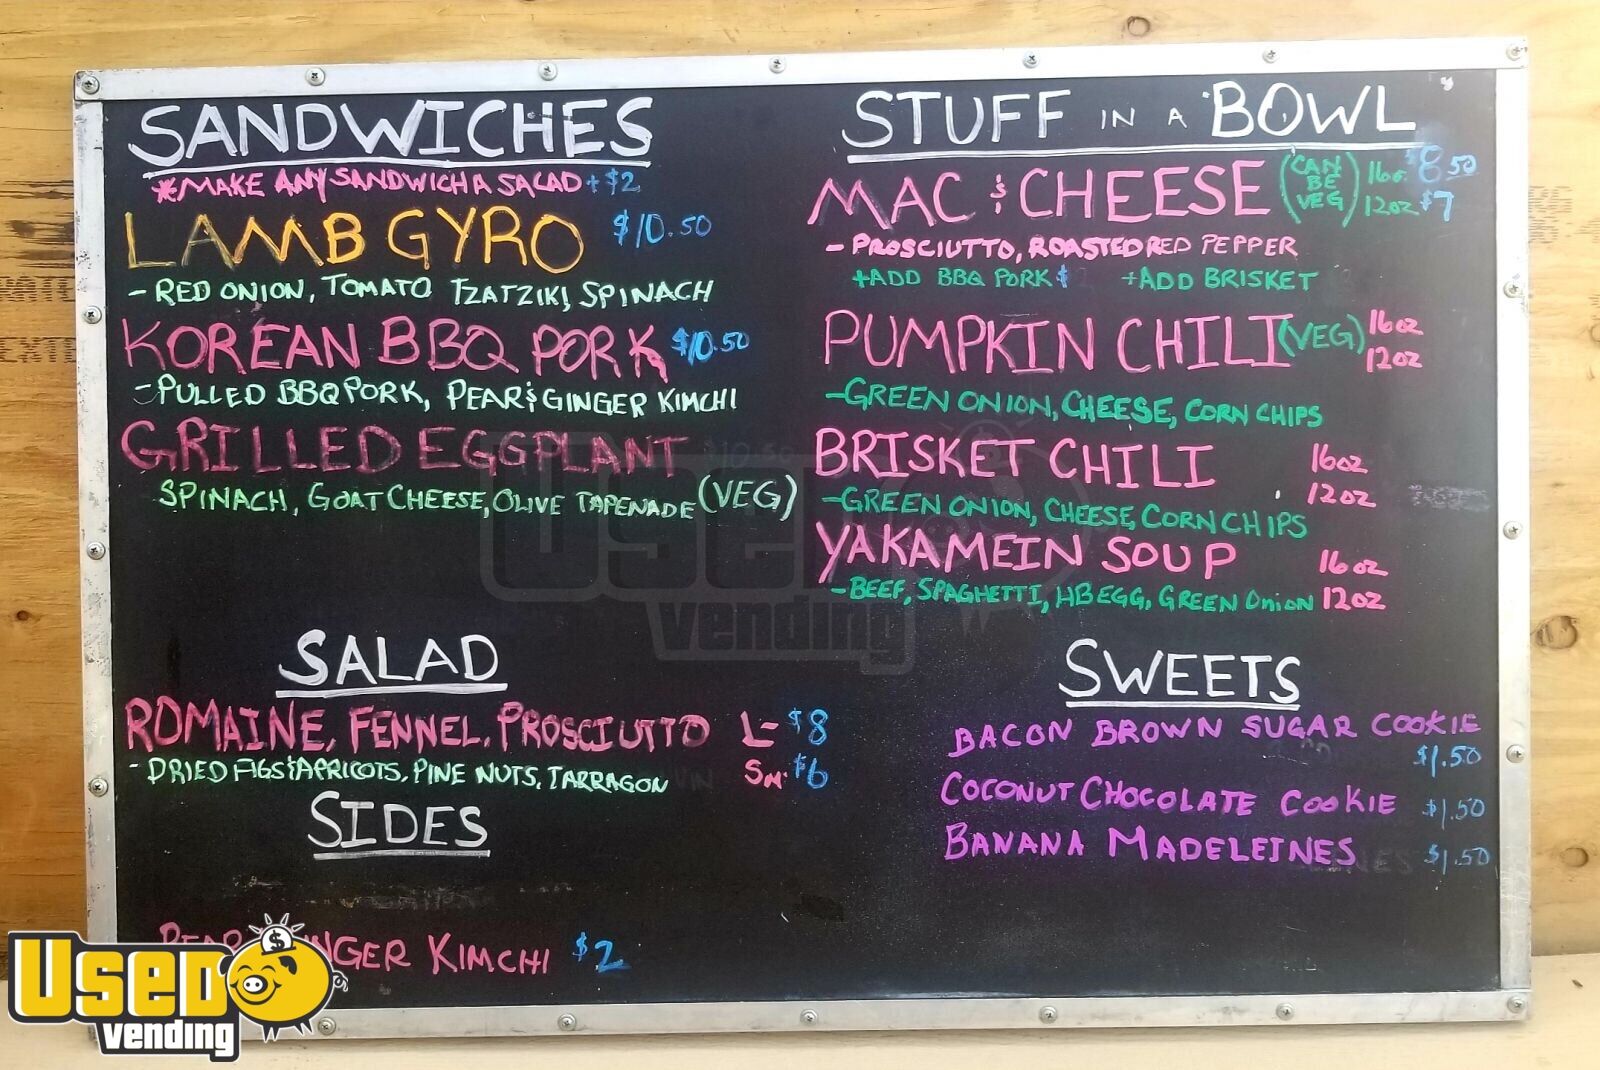 SANDWICHES
*MAKE ANY SANDWICH A SALAD + $2
LAMB GYRO $10.50
- RED ONION, TOMATO TZATZIKI, SPINACH
KOREAN BBQ PORK $10.50
- PULLED BBQ PORK, PEAR & GINGER KIMCHI
GRILLED EGGPLANT $10.50
SPINACH, GOAT CHEESE, OLIVE TAPENADE (VEG)
SALAD
ROMAINE, FENNEL, PROSCIUTTO L- $8
- DRIED FIGS & APRICOTS, PINE NUTS, TARRAGON SM $6
SIDES
KIMCHI $2
STUFF IN A BOWL
MAC & CHEESE (CAN BE VEG) 16oz $8.50
12oz $7
- PROSCIUTTO, ROASTED RED PEPPER
+ADD BBQ PORK $2 +ADD BRISKET
PUMPKIN CHILI (VEG) 16oz
12oz
- GREEN ONION, CHEESE, CORN CHIPS
BRISKET CHILI 16oz
12oz
- GREEN ONION, CHEESE, CORN CHIPS
YAKAMEIN SOUP 16oz
- BEEF, SPAGHETTI, HB EGG, GREEN ONION 12oz
SWEETS
BACON BROWN SUGAR COOKIE
$1.50
COCONUT CHOCOLATE COOKIE $1.50
BANANA MADELEINES $1.50
Used
vending
Used
vending